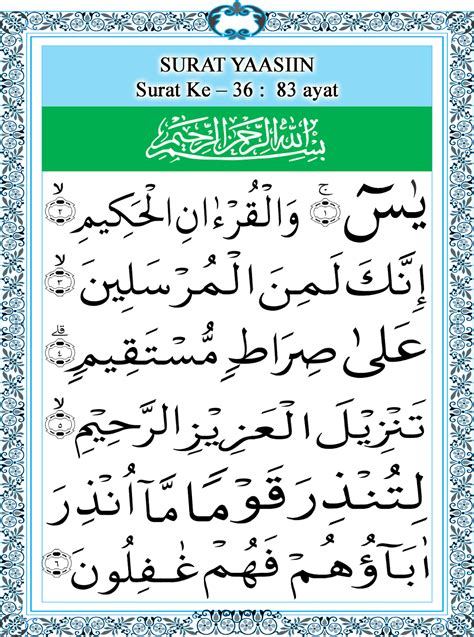 SURAT YAASIIN
Surat Ke – 36 : 83 ayat
بِسْمِ اللّٰهِ الرَّحْمٰنِ الرَّحِيْمِ
يٰسۤ ۚ ۝١ وَالْقُرْءَانِ الْحَكِيْمِ ۙ ۝٢
اِنَّكَ لَمِنَ الْمُرْسَلِيْنَ ۙ ۝٣
عَلٰى صِرَاطٍ مُّسْتَقِيْمٍ ۗ ۝٤
تَنْزِيْلَ الْعَزِيْزِ الرَّحِيْمِ ۙ ۝٥
لِتُنْذِرَ قَوْمًا مَّآ اُنْذِرَ
اٰبَآؤُهُمْ فَهُمْ غٰفِلُوْنَ ۝٦